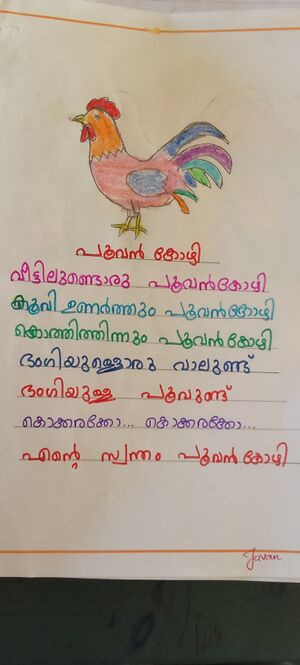 പൂവൻ കോഴി
വീട്ടിലുണ്ടൊരു പൂവൻകോഴി
കൂവി ഉണർത്തും പൂവൻകോഴി
കൊത്തിത്തിന്നും പൂവൻകോഴി
ഭംഗിയുള്ളൊരു വാലുണ്ട്
ഭംഗിയുള്ള പൂവുണ്ട്
കൊക്കരക്കോ... കൊക്കരക്കോ...
എന്റെ സ്വന്തം പൂവൻ കോഴി
Jevan